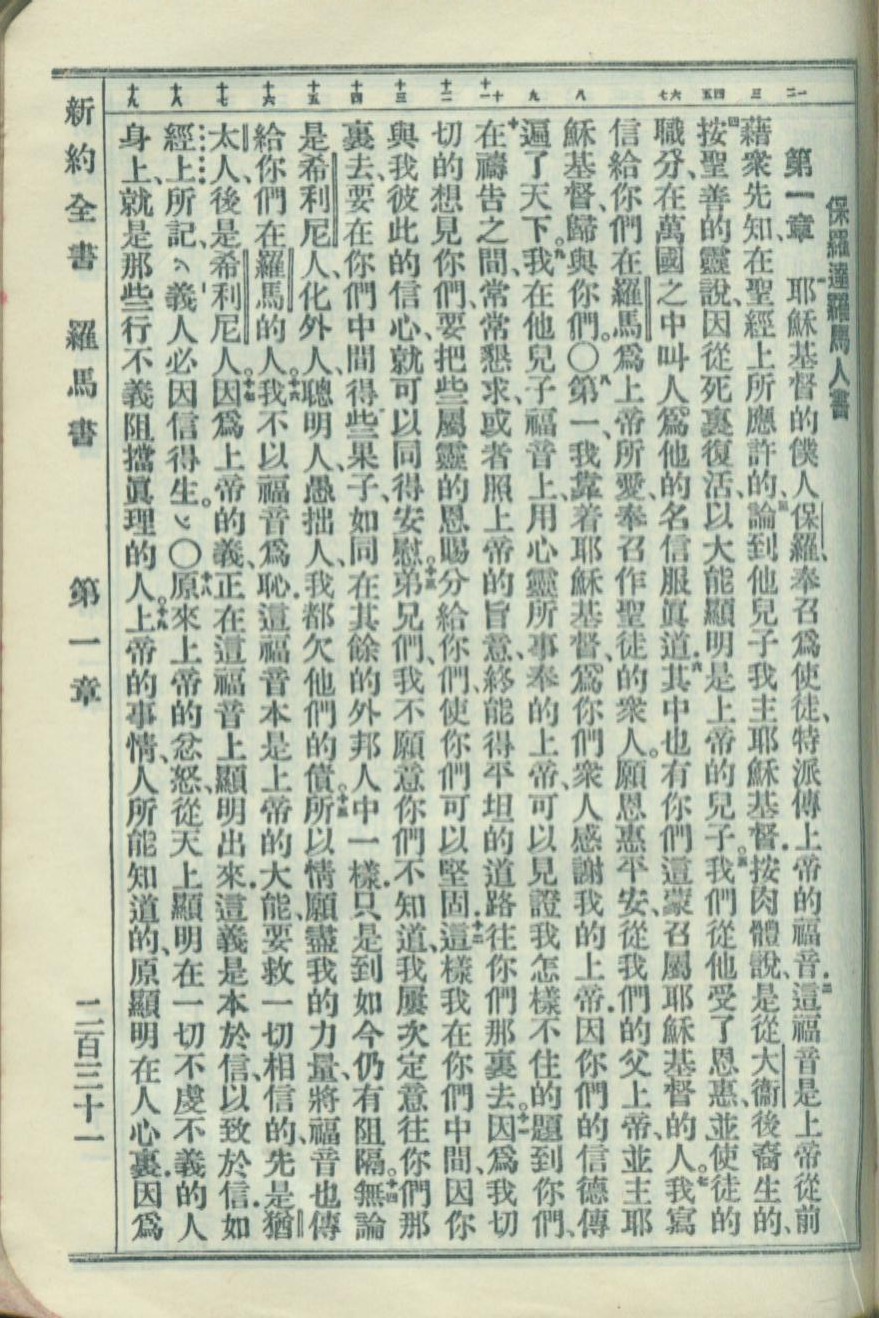 保羅達羅馬人書
第一章 耶穌基督的僕人保羅、奉召爲使徒、特派傳上帝的福音.二這福音是上帝從前
藉衆先知、在聖經上所應許的、三論到他兒子我主耶穌基督.按肉體說、是從大衞後裔生的、
四按聖善的靈說、因從死裏復活、以大能顯明是上帝的兒子。五我們從他受了恩惠、並使徒的
職分、在萬國之中叫人爲他的名信服眞道.六其中也有你們這蒙召屬耶穌基督的人。七我寫
信給你們在羅馬爲上帝所愛、奉召作聖徒的衆人。願恩惠平安、從我們的父上帝、並主耶
穌基督、歸與你們。〇八第一、我靠着耶穌基督、爲你們衆人感謝我的上帝.因你們的信德傳
遍了天下。九我在他兒子福音上、用心靈所事奉的上帝、可以見證我怎樣不住的題到你們、
十在禱告之間、常常懇求、或者照上帝的旨意、終能得平坦的道路往你們那裏去。十一因爲我切
切的想見你們、要把些屬靈的恩賜分給你們、使你們可以堅固.十二這樣我在你們中間、因你
與我彼此的信心、就可以同得安慰。十三弟兄們、我不願意你們不知道、我屢次定意往你們那
裏去、要在你們中間得些果子、如同在其餘的外邦人中一樣.只是到如今仍有阻隔。十四無論
是希利尼人、化外人、聰明人、愚拙人、我都欠他們的債。十五所以情願盡我的力量、將福音也傳
給你們在羅馬的人。十六我不以福音爲恥.這福音本是上帝的大能、要救一切相信的、先是猶
太人、後是希利尼人。十七因爲上帝的義、正在這福音上顯明出來.這義是本於信、以致於信.如
經上所記、義人必因信得生。〇十八原來上帝的忿怒、從天上顯明在一切不虔不義的人
身上、就是那些行不義阻擋眞理的人。十九上帝的事情、人所能知道的、原顯明在人心裏.因爲
一二
三
四五
六七
八
九
十十一
十二
十三
十四
十五
十六
十七
十八
十九
新約全書 羅馬書 第一章 二百三十一